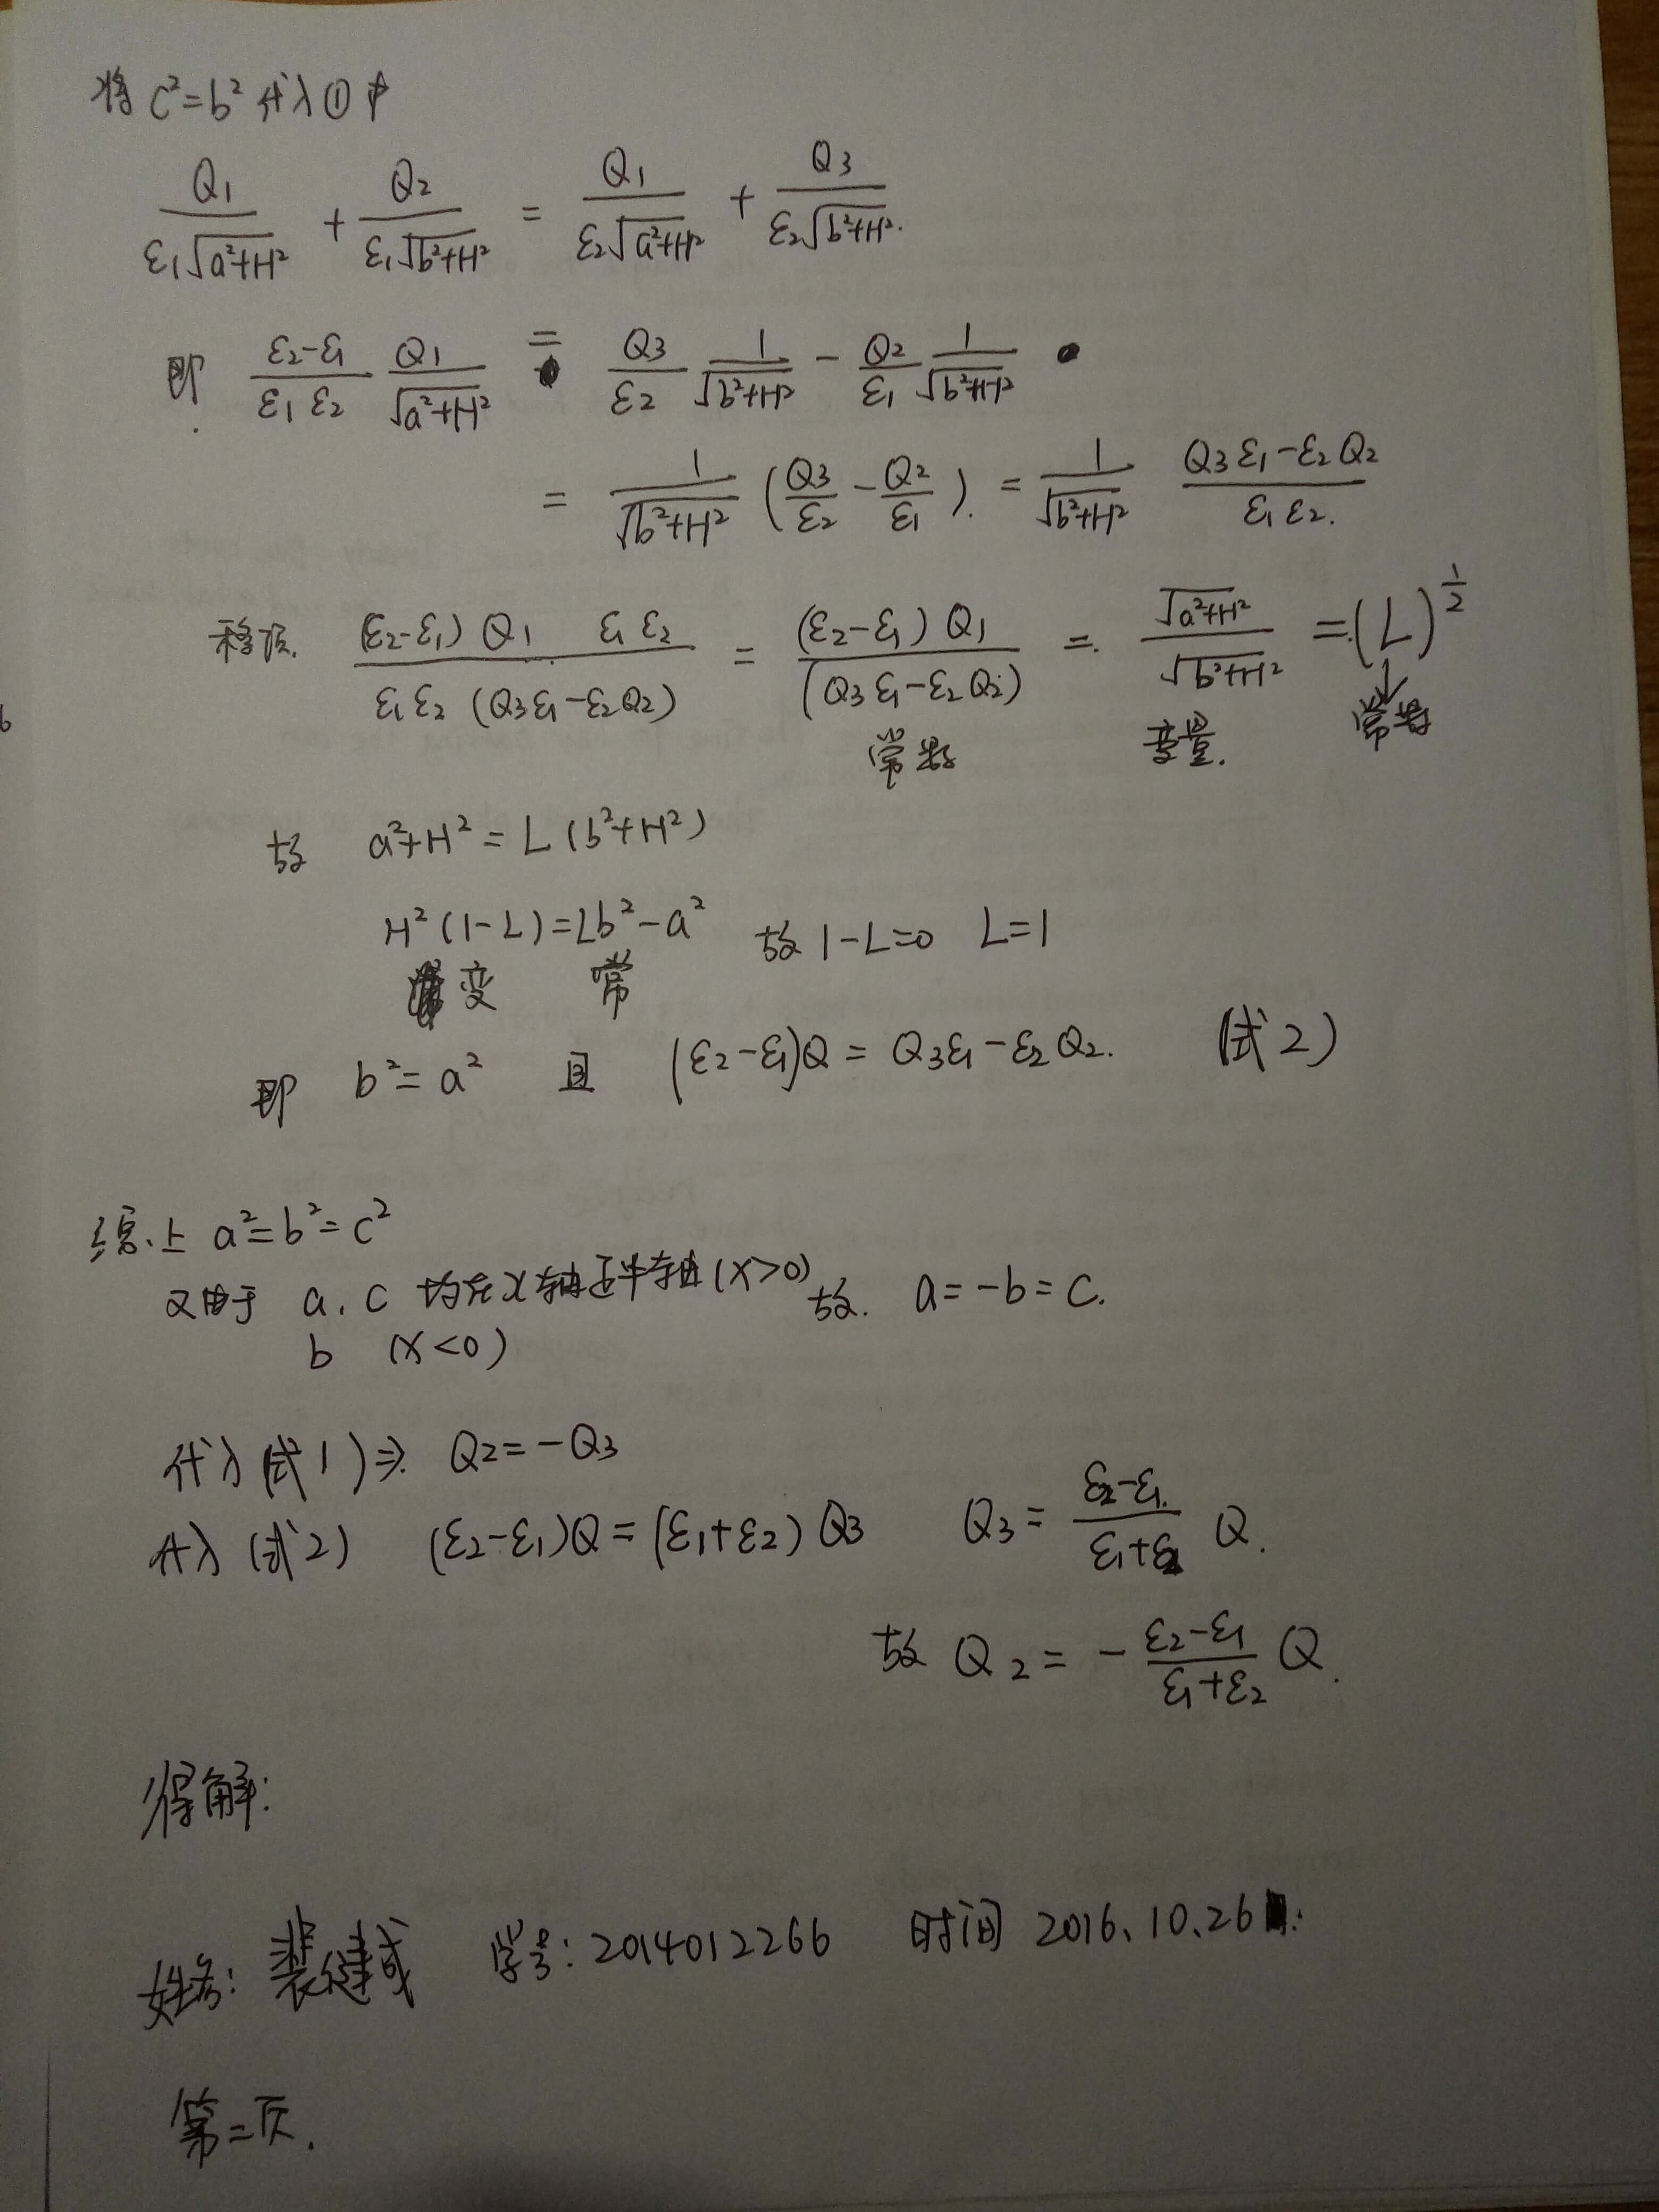 将 c²=b² 代入①中
Q1/(ε1√(a²+H²)) + Q2/(ε1√(b²+H²)) = Q1/(ε2√(a²+H²)) + Q3/(ε2√(b²+H²)).
即 (ε2-ε1)/(ε1 ε2) Q1/√(a²+H²) = Q3/ε2 1/√(b²+H²) - Q2/ε1 1/√(b²+H²)
= 1/√(b²+H²) (Q3/ε2 - Q2/ε1). = 1/√(b²+H²) (Q3 ε1-ε2 Q2)/(ε1 ε2).
移项. (ε2-ε1) Q1 ε1 ε2/(ε1 ε2 (Q3ε1-ε2Q2)) = (ε2-ε1) Q1/(Q3 ε1-ε2 Q2) = √(a²+H²)/√(b²+H²) = (L)^(1/2)
常数 变量. ↓常数
故 a²+H² = L(b²+H²)
H²(1-L)=Lb²-a² 故 1-L=0 L=1
变 常
即 b²=a² 且 (ε2-ε1)Q = Q3ε1-ε2 Q2. (式2)
综上 a²=b²=c²
又由于 a, c 均在x轴正半轴(x>0) 故. a=-b=c.
b (x<0)
代入(式1)⇒ Q2=-Q3
代入(式2) (ε2-ε1)Q=(ε1+ε2) Q3 Q3= (ε2-ε1)/(ε1+ε2) Q.
故 Q2= - (ε2-ε1)/(ε1+ε2) Q.
得解:
姓名: 裴健成 学号: 2014012266 时间 2016.10.26
第二页.